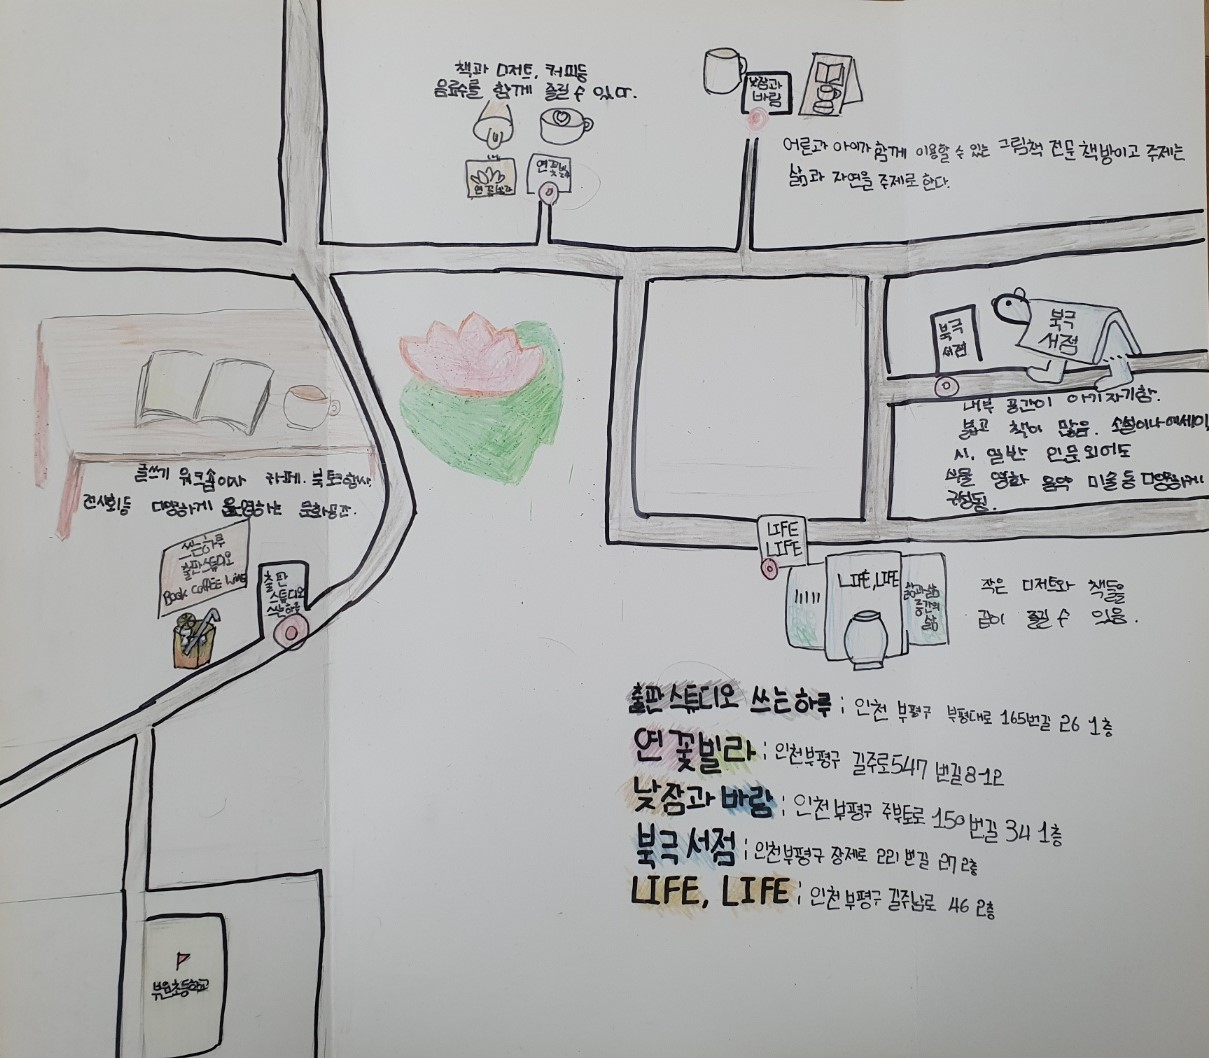 책과 디저트, 커피등
음료수를 함께 즐길 수 있다.
연꽃빌라
연꽃빌라
낮잠과
바람
어른과 아이가 함께 이용할 수 있는 그림책 전문 책방이고 주제는
삶과 자연을 주제로 한다.
북극
서점
북극
서점
내부 공간이 아기자기함.
볼고 책이 많음. 소설이나 에세이,
시, 일반 인문 외에도
식물 영화 음악 미술 등 다양하게
구성됨.
글쓰기 워크숍이나 카페, 북토크 행사,
전시회등 다양하게 운영하는 문화공간.
쓰는하루
출판스튜디오
Book COFFEE WINE
출판
스튜디오
쓰는하루
LIFE
LIFE
LIFE, LIFE
삶과 삶
공간의
삶
작은 디저트와 책들을
같이 즐길 수 있음.
출판 스튜디오 쓰는 하루 ; 인천 부평구 부평대로 165번길 26 1층
연꽃빌라 ; 인천부평구 길주로547 번길8-12
낮잠과 바람 ; 인천 부평구 주부토로 150번길 34 1층
북극 서점 ; 인천부평구 장제로 221 번길 27 2층
LIFE, LIFE ; 인천 부평구 길주남로 46 2층
부원초등학교